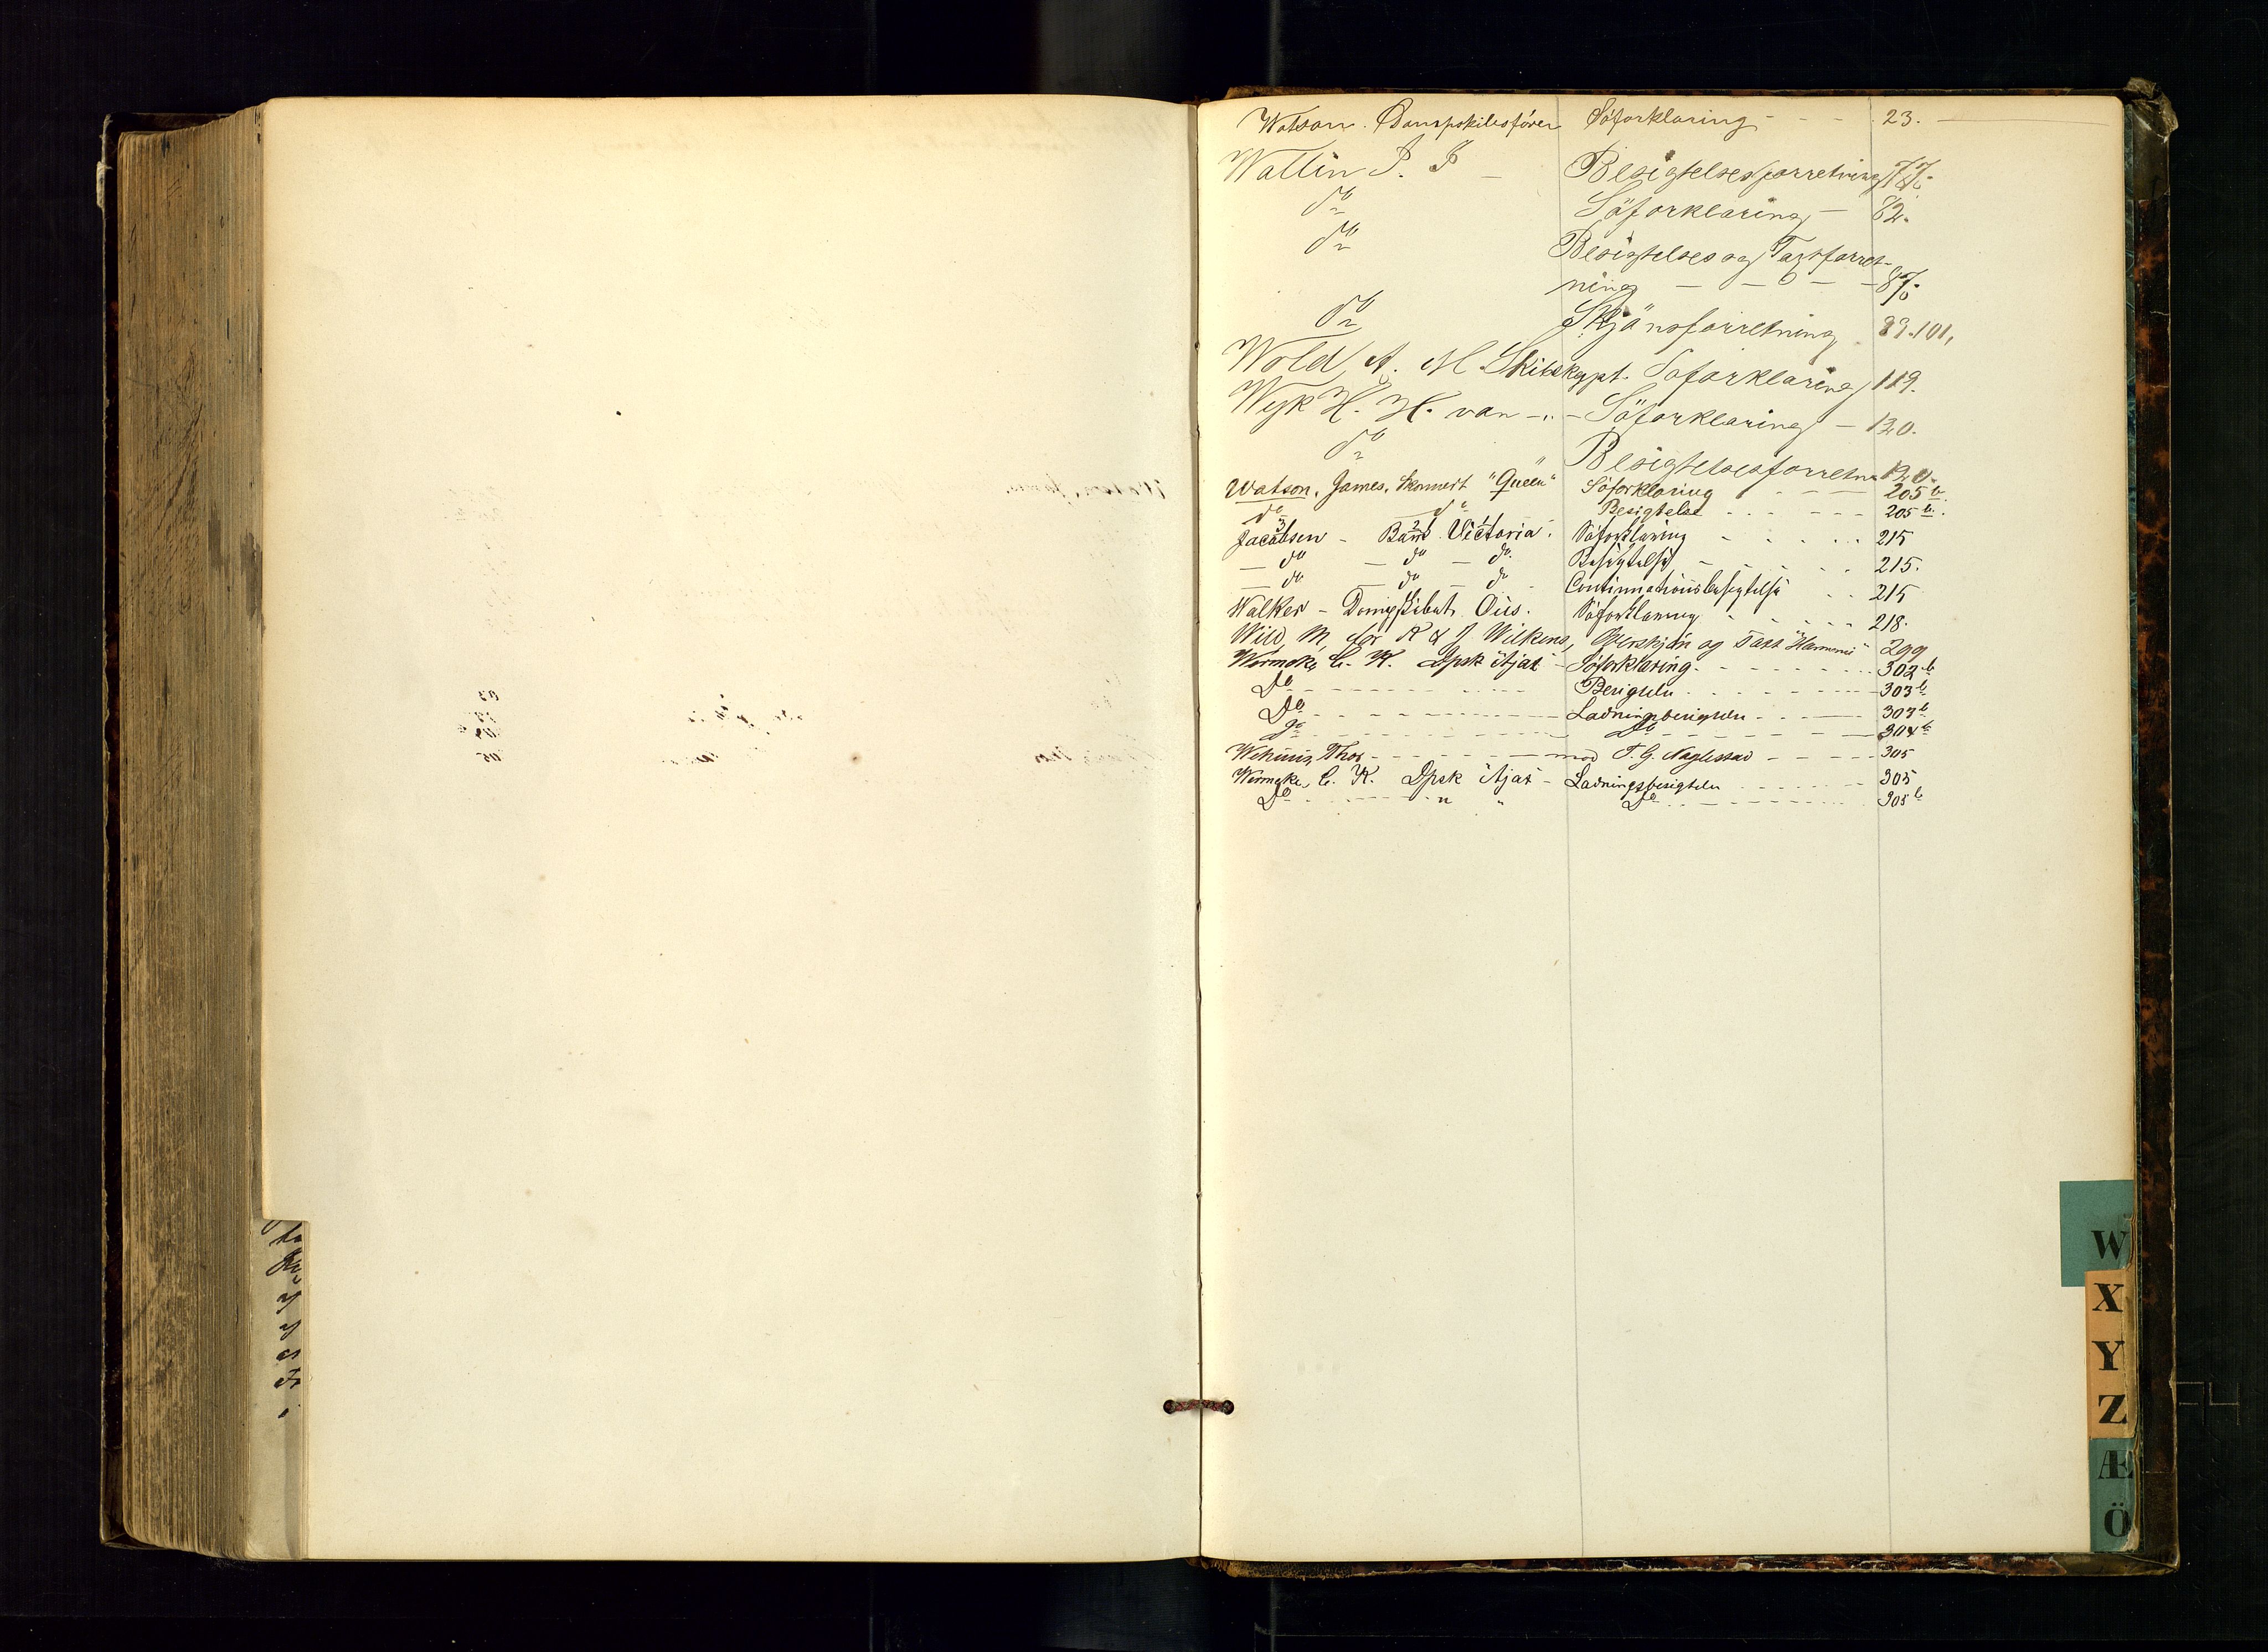 Watson. Dampskibsförer Söforklaring - - - 23.
Wallin P. P - Besigtelsesforretning 77.
do Söforklaring - 82.
do Besigtelses og Taxtforret-
ning - - - - 87.
do Skjönsforretning 89. 101.
Wold, A. M. Skibskapt. Söforklaring 119.
Wyk H. H. van - „ - Söforklaring - 120.
do Besigtelsesforretn
Watson, James, Skonnert "Queen" Söforklaring - - - 205 b.
do do Besigtelse - - - - - - 205 b.
3 2 1
Jacobsen - Bark Victoria. Söforklaring - - - - - 215
- do - do - do. Besigtelse - - - - 215.
- do - do - do - Continuationsbesigtelse - - 215
Walker - Dampskibet Ous. Söforklaring - - - - - 218.
Wild, M for R & J Wilkens, Overskjön og Taxt "Harmonie" 299
Wermcke C. K. Dpsk "Ajax" - Söforklaring - - - - 302 b
Do - - - - - - Besigtelse - - - - - - 303 b
Do - - - - - - Ladningsbesigtelse - - - - 303 b
Do - - - - - - Do - - - - 304 b
Wehuus, Thos - - - - - mod T. G. Naglestad - - - - 305
Wermcke, C. K. Dpsk "Ajax" - Ladningsbesigtelse - - - - 305
Do - - - - " " Do - - - - - 305 b
W
X
Y
Z
Æ
Ö